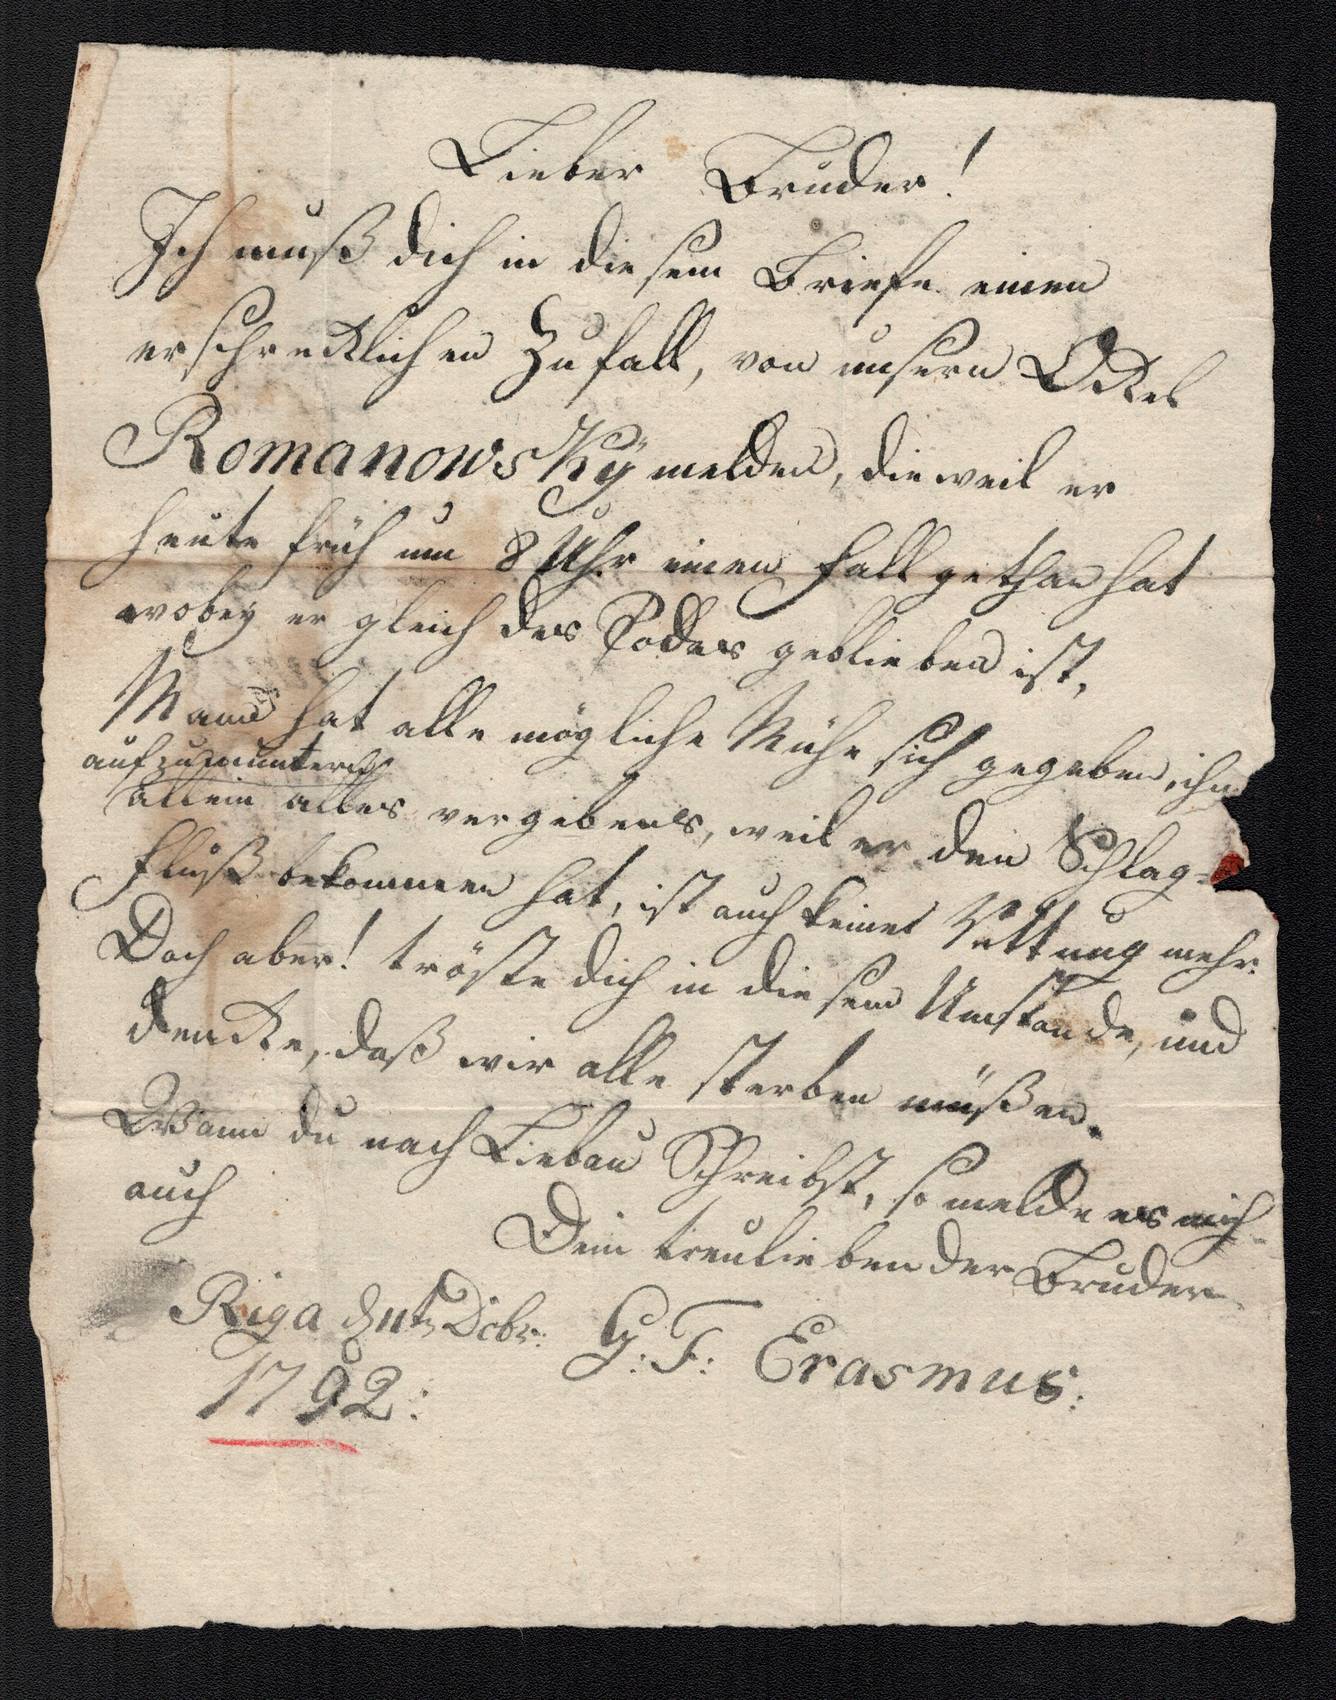 Lieber Bruder!
Ich muß dich in diesem Briefe einen
erschrecklichen Zufall, von unsern Ockel
Romanowsky melden, dieweil er
heute früh um 8 Uhr einen Fall gethan hat
wobey er gleich des Todes geblieben ist,
Mann hat alle mögliche Mühe sich gegeben, ihn
aufzumuntern
allein alles vergebens, weil er den Schlag-
fluß bekommen hat, ist auch keine Rettung mehr.
Doch aber! tröste dich in diesem Umstande, und
dencke, daß wir alle sterben müßen.
Wann du nach Liebau Schreibst, so melde es mich
auch
Dein treuliebender Bruder
Riga Dcbr:
G: F: Erasmus:
1792: